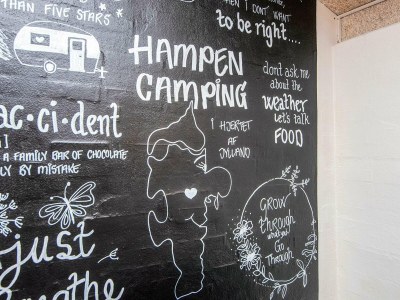 THAN FIVE STARS"
WHEN I DON'T WANT
to be right....
HAMPEN
CAMPING
I HJERTET
AF
JYLLAND
dont ask me
about the
weather
Let's talk
FOOD
ac·ci·dent
A FAMILY BAR OF CHOCOLATE
LY BY MISTAKE
GROW
THROUGH
what you
Go
Through
Just
Breathe